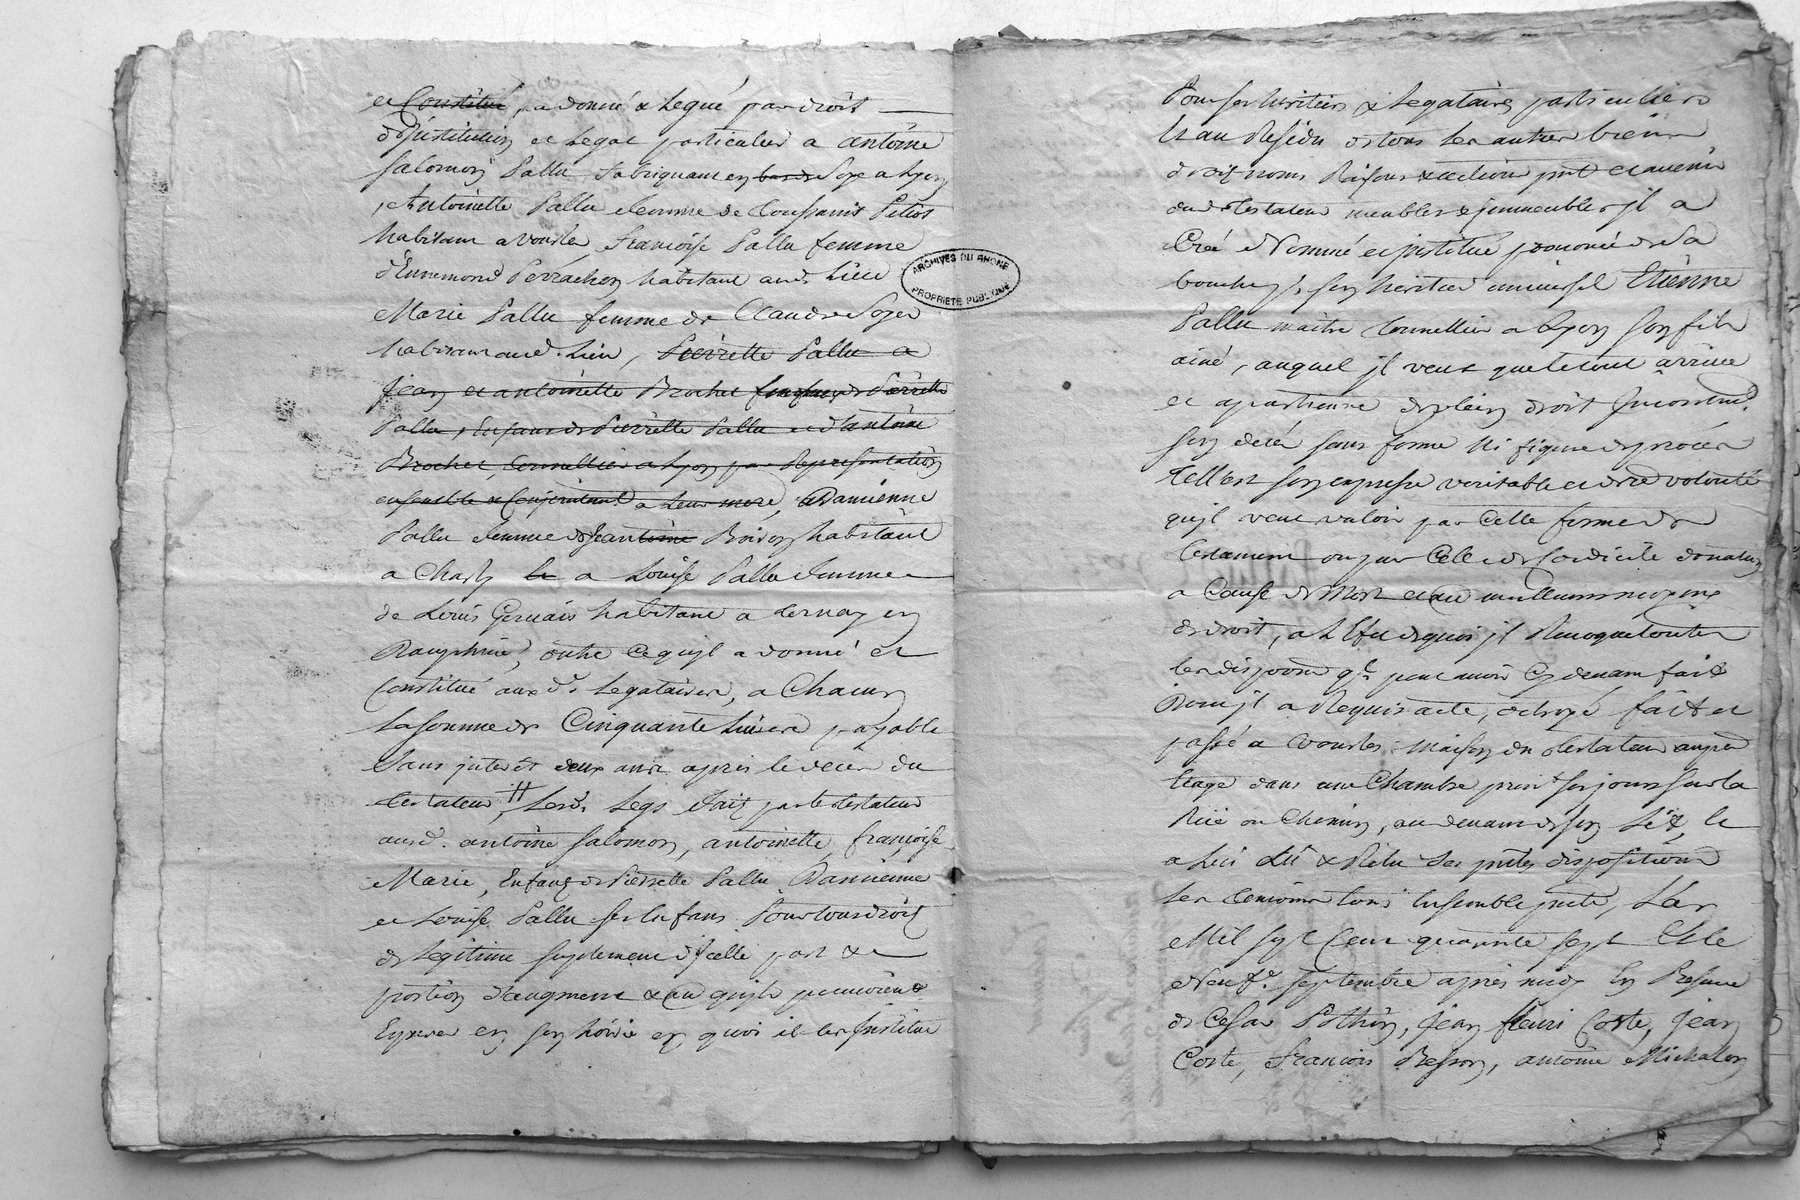 et Constitué, a donné & Legué par droit
d'Institution et Legat particulier a antoine
Salomon Pallu fabriquant en bas de Soye a Lyon
, Antoinette Pallu femme de Petiot
habitant a Vourles, francoise Pallu femme
d'Ennemond Perrachon habitant aud. Lieu
Marie Pallu femme de Claude Soyer
habitant aud. Lieu, Pierrette Pallu a
Jean et antoinette Brochet Enfans de Pierrette
Pallu, Enfans de Pierrette Pallu et d'antoine
Brochet, Tonnellier a Lyon par Representation
ensemble & Conjointemt. a Leur mere, a Damienne
Pallu femme de Jean toine Boiron habitant
a Charly le a Louise Pallu femme
de Louis Gervais habitant a Ternay en
Dauphiné, outre ce qu'jl a donné et
Constitué aux ds. Legataires, a Chacun
La Somme de Cinquante Livres payable
Sans jnterêt deux ans apres le deces du
testateur # Lesds. Legs fait par le testateur
aud. antoine Salomon, antoinette, françoise
Marie, Enfans de Pierrette Pallu, Damienne
et Louise Pallu ses Enfans Pour tous droits
de Legitime suplement d'Jcelle part &
portion d'augment & au qu'ils pourroient
Esperer en son hoirie en quoi il les Institue
ARCHIVES DU RHONE
PROPRIETE PUBLIQUE
Pour ses heritiers & Legataires particuliers
Et au Residu de tous les autres biens
droits noms Raisons & actions pnt. et avenir
dud. testateur meubles & jmmeubles jl a
Créé Nommé et jnstitué prononcé de Sa
bouche p. son heritier universel Etienne
Pallu maitre tonnellier a Lyon son fils
ainé, auquel jl veut que le tout arrive
et apartienne de plein droit Jncontind.
son decés sans forme Ni figure de procés
Tell'est son expresse veritable et dre. volonté
qu'jl veut valoir par Celle forme de
testament ou par Celle de Codicile donation
a Cause de Mort et au meilleurs moyens
de droit, a L'Effet de quoi jl Revoque toutes
les dispoons. ql. peut avoir Cy devant fait
Dont jl a Requis acte, octroyé fait et
passé a Vourles Maison du testateur au pre
Etage dans une Chambre prent. ses jours sur la
Rüe ou Chemin, au devant de son Lit, le
a Lui Lû & Relu Ses pntes dispositions
Les temoins tous Ensemble pnts, L'an
Mil Sept Cent quarante sept Et le
Neufe. Septembre après midy En Presence
de Cesar Pothin, Jean fleuri Coste, Jean
Coste, Francois Besson, antoine Michalon